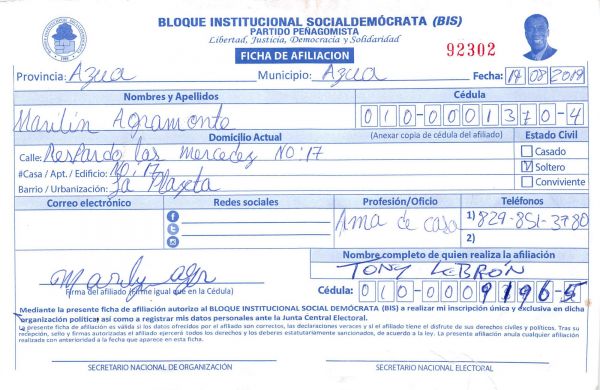 BLOQUE INSTITUCIONAL SOCIALDEMÓCRATA (BIS)
PARTIDO PEÑAGOMISTA
Libertad, Justicia, Democracia y Solidaridad
FICHA DE AFILIACION
92302
Provincia: Azua Municipio: Azua Fecha: 17 08 2019
Nombres y Apellidos Cédula
Marilín Agramonte 010-0001370-4
Domicilio Actual (Anexar copia de cédula del afiliado) Estado Civil
Calle: Respardo las mercedez NO:17 Casado
#Casa / Apt. / Edificio: NO:17 Soltero
Barrio / Urbanización: La Plaseta Conviviente
Correo electrónico Redes sociales Profesión/Oficio Teléfonos
Ama de casa 1) 829-851-3780
2)
Nombre completo de quien realiza la afiliación
TONY LEBRÓN
Firma del afiliado (Firme igual que en la Cédula) Cédula: 010-0009196-5
Mediante la presente ficha de afiliación autorizo al BLOQUE INSTITUCIONAL SOCIAL DEMÓCRATA (BIS) a realizar mi inscripción única y exclusiva en dicha
organización política; así como a registrar mis datos personales ante la Junta Central Electoral.
La presente ficha de afiliación es válida si los datos ofrecidos por el afiliado son correctos, las declaraciones veraces y si el afiliado tiene el disfrute de sus derechos civiles y políticos. Tras su
recepción, sello y firmas autorizadas el afiliado ejercerá todos los derechos y los deberes estatutariamente sancionados, de acuerdo a la ley. La presente afiliación anula cualquier afiliación
realizada con anterioridad a la fecha que aparece en esta ficha.
SECRETARIO NACIONAL DE ORGANIZACIÓN SECRETARIO NACIONAL ELECTORAL